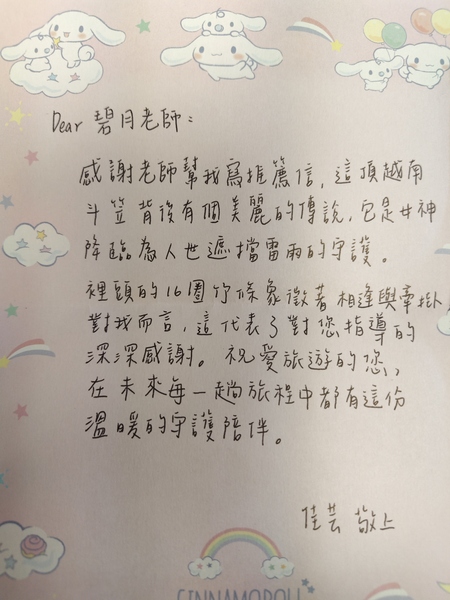 Dear 碧月老師：
感謝老師幫我寫推薦信，這頂越南
斗笠背後有個美麗的傳說，它是女神
降臨為人世遮擋雷雨的守護。
裡頭的16圈竹條象徵著相逢與牽掛，
對我而言，這代表了對您指導的
深深感謝。祝愛旅遊的您，
在未來每一趟旅程中都有這份
溫暖的守護陪伴。
佳芸 敬上
CINNAMOROLL